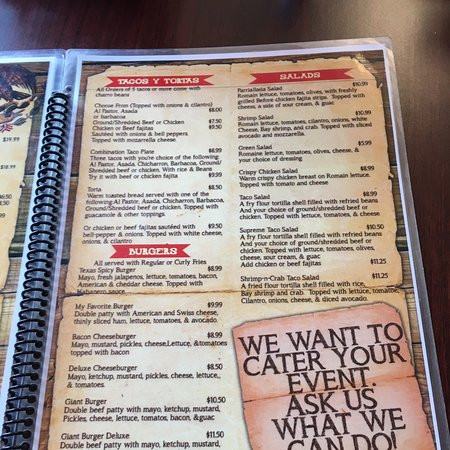 TACOS Y TORTAS
All Orders of 5 tacos or more come with
charro beans
Choose From (Topped with onions & cilantro)
Al Pastor, Asada $8.00
or barbacoa
Ground/Shredded Beef or Chicken $7.50
Chicken or Beef fajitas $9.50
Sautéed with onions & bell peppers.
Topped with mozzarella cheese.
Combination Taco Plate $8.99
Three tacos with you're choice of the following:
Al Pastor, Asada, Chicharron, Barbacoa, Ground/
Shredded beef or chicken. With rice & Beans
Try it with beef or chicken fajita $9.99
Torta $8.50
Warm toasted bread served with one of the
following: Al Pastor, Asada, Chicharron, Barbacoa,
Or Ground/shredded beef or chicken. Topped with
guacamole & other toppings.
Or chicken or beef fajitas sautéed with $9.50
bell-pepper & onions. Topped with white cheese,
onions, & cilantro
BURGERS
All served with Regular or Curly Fries
Texas Spicy Burger $8.99
Mayo, fresh jalapenos, lettuce, tomatoes, bacon,
American & cheddar cheese. Topped with
Habanero sauce
My Favorite Burger $9.99
Double patty with American and Swiss cheese,
thinly sliced ham, lettuce, tomatoes, & avocado.
Bacon Cheeseburger $8.99
Mayo, mustard, pickles, cheese, Lettuce, & tomatoes
topped with bacon
Deluxe Cheeseburger $8.50
Mayo, ketchup, mustard, pickles, cheese, lettuce,
& tomatoes.
Giant Burger $10.50
Double beef patty with mayo, ketchup, mustard,
Pickles, cheese, lettuce, tomatoes, bacon, &guac
Giant Burger Deluxe $11.50
Double beef patty with mayo, ketchup, mustard,
SALADS
Parrillada Salad $10.99
Romain lettuce, tomatoes, olives, with freshly
grilled Before chicken fajita strips. Topped with
cheese, a side of sour cream, & guac
Shrimp Salad $10.99
Romain lettuce, tomatoes, cilantro, onions, white
Cheese, Bay shrimp, and crab. Topped with sliced
avocado and mozzarella.
Green Salad $5.99
Romaine lettuce, tomatoes, olives, cheese, &
your choice of dressing
Crispy Chicken Salad $8.99
Warm crispy chicken breast on Romain lettuce.
Topped with tomato and cheese
Taco Salad $8.99
A fry flour tortilla shell filled with refried beans
And your choice of ground/shredded beef or
chicken, lettuce, tomatoes, & cheese
Supreme Taco Salad $9.50
A fry flour tortilla shell filled with refried beans
And your choice of ground/shredded beef or
chicken. Topped with lettuce, tomatoes, olives,
cheese, sour cream, & guac
Add chicken or beef fajitas $11.25
Shrimp-n-Crab Taco Salad $11.25
A fried flour tortilla shell filled with rice,
Bay shrimp and crab. Topped with lettuce, tomatoe,
Cilantro, onions, cheese, & diced avocado.
WE WANT TO
CATER YOUR
EVENT.
ASK US
WHAT WE
CAN DO!